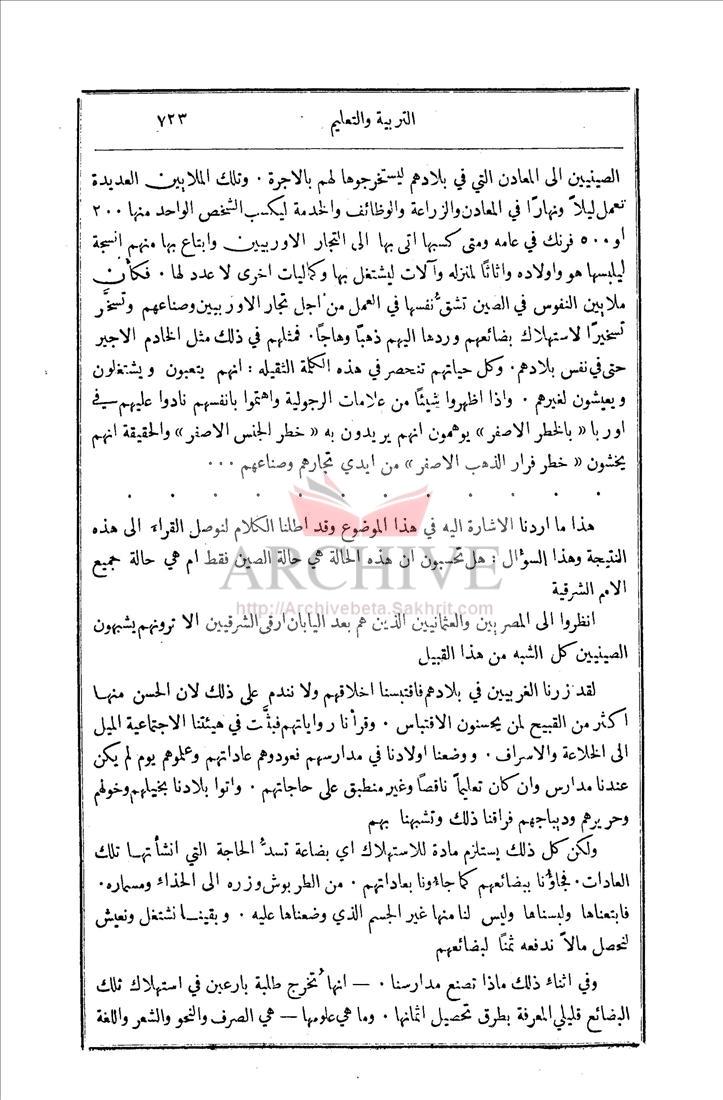 التربية والتعليم
٧٢٣
الصينيين الى المعادن التي في بلادهم ليستخرجوها لهم بالاجرة . وتلك الملايين العديدة
تعمل ليلاً ونهارًا في المعادن والزراعة والوظائف والخدمة ليكسب الشخص الواحد منها ٢٠٠
او ٥٠٠ فرنك في عامه ومتى كسبها اتى بها الى التجار الاوربيين وابتاع بها منهم انسجة
ليلبسها هو واولاده واثاثًا لمنزله وآلات ليشتغل بها وكماليات اخرى لا عدد لها . فكأن
ملايين النفوس في الصين تشقي نفسها في العمل من اجل تجار الاوربيين وصناعهم وتسخَّر
تسخيرًا لاستهلاك بضائعهم وردها اليهم ذهبًا وهاجًا . فمثلهم في ذلك مثل الخادم الاجير
حتى في نفس بلادهم. وكل حياتهم تنحصر في هذه الكلمة الثقيله : انهم يتعبون ويشتغلون
ويعيشون لغيرهم . واذا اظهروا شيئًا من علامات الرجولية واهتموا بانفسهم نادوا عليهم في
اوربا « بالخطر الاصفر » يوهمون انهم يريدون به « خطر الجنس الاصفر » والحقيقة انهم
يخشون « خطر فرار الذهب الاصفر » من ايدي تجارهم وصناعهم . . .
. . . . . . . . . . . .
هذا ما اردنا الاشارة اليه في هذا الموضوع وقد اطلنا الكلام لنوصل القراء الى هذه
النتيجة وهذا السؤال : هل تحسبون ان هذه الحالة هي حالة الصين فقط ام هي حالة جميع
الامم الشرقية
انظروا الى المصريين والعثمانيين الذين هم بعد اليابان ارقى الشرقيين الا ترونهم يشبهون
الصينيين كل الشبه من هذا القبيل
لقد زرنا الغربيين في بلادهم فاقتبسنا اخلاقهم ولا نندم على ذلك لان الحسن منها
اكثر من القبيح لمن يحسنون الاقتباس . وقرأنا رواياتهم فبثَّت في هيئتنا الاجتماعية الميل
الى الخلاعة والاسراف . ووضعنا اولادنا في مدارسهم فعودوهم عاداتهم وعلموهم يوم لم يكن
عندنا مدارس وان كان تعليماً ناقصًا وغير منطبق على حاجاتهم . واتوا بلادنا بخيلهم وخولهم
وحريرهم وديباجهم فراقنا ذلك وتشبهنا بهم
ولكن كل ذلك يستلزم مادة للاستهلاك اي بضاعة تسدُّ الحاجة التي انشأتها تلك
العادات . فجاؤنا ببضائعهم كما جاؤونا بعاداتهم . من الطربوش وزره الى الحذاء ومسماره .
فابتعناها ولبسناها وليس لنا منها غير الجسم الذي وضعناها عليه . وبقينا نشتغل ونعيش
لنحصل مالاً ندفعه ثمنًا لبضائعهم
وفي اثناء ذلك ماذا تصنع مدارسنا . — انها تُخرج طلبة بارعين في استهلاك تلك
البضائع قليلي المعرفة بطرق تحصيل اثمانها . وما هي علومها — هي الصرف والنحو والشعر واللغة
ARCHIVE
http://Archivebeta.Sakhrit.com